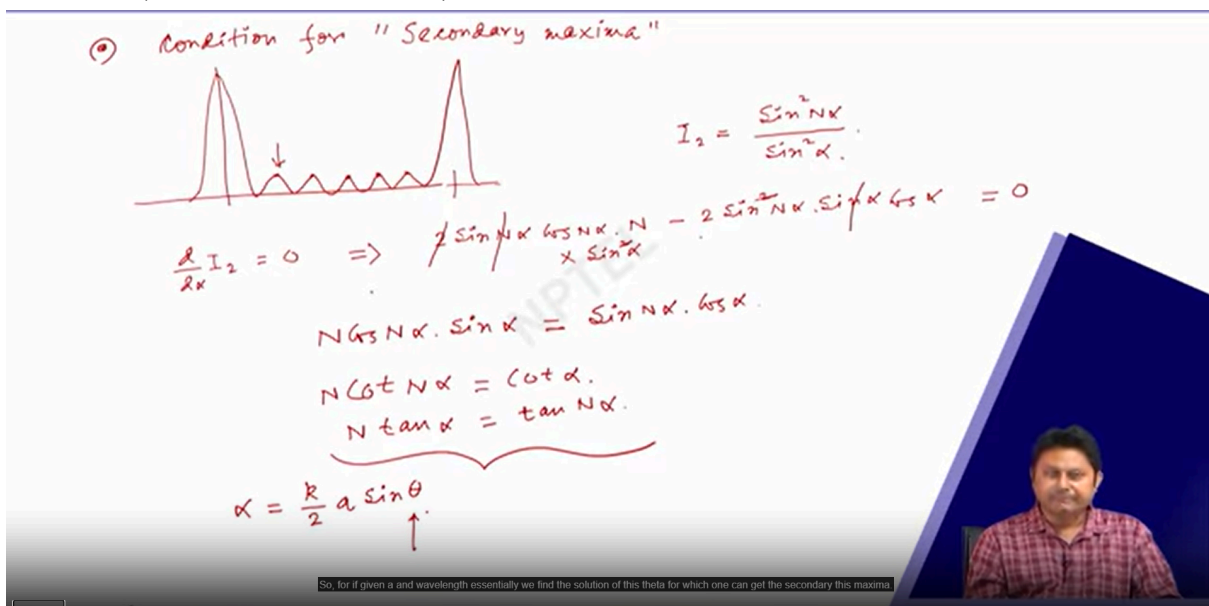 ⊙ Condition for "Secondary maxima"
I₂ = sin²Nα / sin²α.
d/dα I₂ = 0 => 2 sin Nα cos Nα. N × sin²α - 2 sin²Nα. sin α cos α = 0
N cos Nα. sin α = sin Nα. cos α.
N cot Nα = cot α.
N tan α = tan Nα.
α = k/2 a sin θ.
NPTEL
So, for if given a and wavelength essentially we find the solution of this theta for which one can get the secondary this maxima.